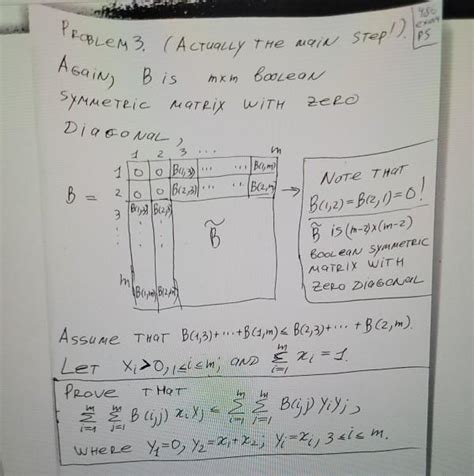 PROBLEM 3. (ACTUALLY THE MAIN STEP!).
480
EXAM
P5
AGAIN, B IS m×m BOOLEAN
SYMMETRIC MATRIX WITH ZERO
DIAGONAL,
1 2 3 ... m
1 0 0 B(1,3) ... ... B(1,m)
B = 2 0 0 B(2,3) ... ... B(2,m)
3 B(1,3) B(2,3)
B̃
m B(1,m) B(2,m)
NOTE THAT
B(1,2)=B(2,1)=0!
B̃ IS (m-2)×(m-2)
BOOLEAN SYMMETRIC
MATRIX WITH
ZERO DIAGONAL
ASSUME THAT B(1,3)+...+B(1,m) ≤ B(2,3)+...+B(2,m).
LET xi>0, 1≤i≤m; AND Σ_{i=1}^{m} xi = 1.
PROVE THAT
Σ_{i=1}^{m} Σ_{j=1}^{m} B(i,j) xi yj ≤ Σ_{i=1}^{m} Σ_{j=1}^{m} B(i,j) yi yj,
WHERE Y1=0, Y2=x1+x2; Yi=xi, 3≤i≤m.